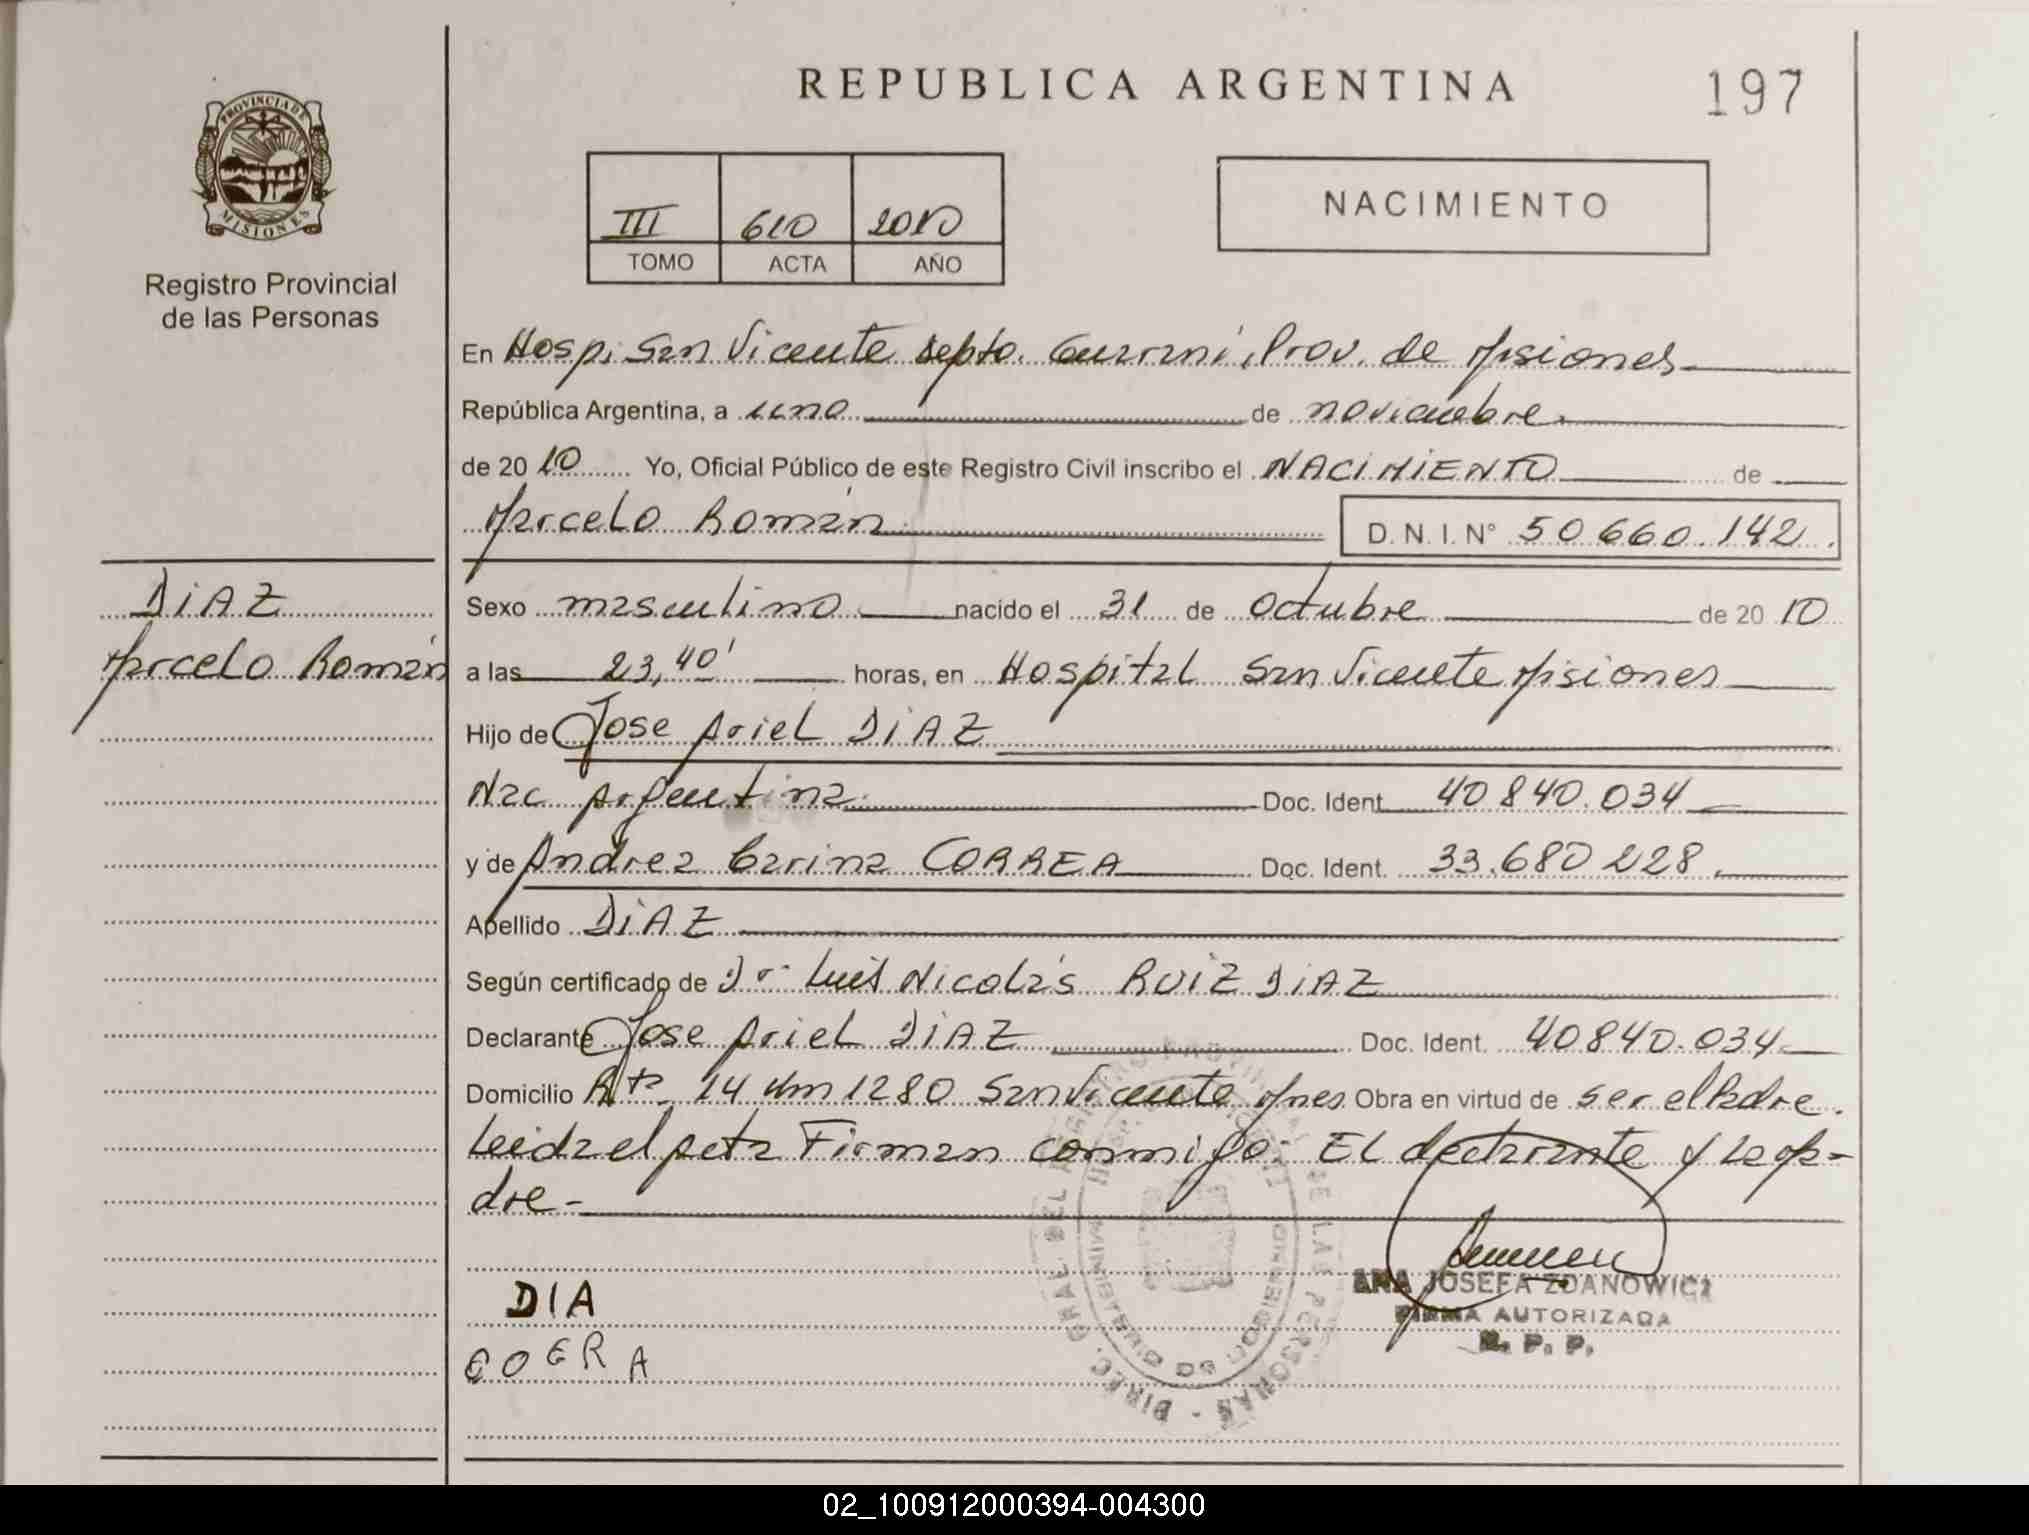 REPUBLICA ARGENTINA
197
PROVINCIA DE
MISIONES
Registro Provincial
de las Personas
III 610 2010
TOMO ACTA AÑO
NACIMIENTO
En Hosp. San Vicente Depto. Guarani, Prov. de Misiones
República Argentina, a uno de noviembre
de 2010 Yo, Oficial Público de este Registro Civil inscribo el NACIMIENTO de
Marcelo Román D. N. I. N° 50.660.142.
DIAZ
Marcelo Román
Sexo masculino nacido el 31 de octubre de 2010
a las 23,40' horas, en Hospital San Vicente Misiones
Hijo de Jose Ariel DIAZ
Nac Argentina Doc. Ident. 40840.034
y de Andrea Carina CORREA Doc. Ident. 33.680228.
Apellido DIAZ
Según certificado de Dr. Luis Nicolás RUIZ DIAZ
Declarante Jose Ariel DIAZ Doc. Ident. 40840.034
Domicilio Rta. 14 Km 1280 San Vicente Mnes. Obra en virtud de ser el Padre.
Leida el Acta Firman conmigo: El declarante y La Ma-
dre -
DIA
COERA
ANA JOSEFA ZDANOWICZ
FIRMA AUTORIZADA
R. P. P.
DIREC. GRAL. DEL DE LAS PERSONAS
02_100912000394-004300